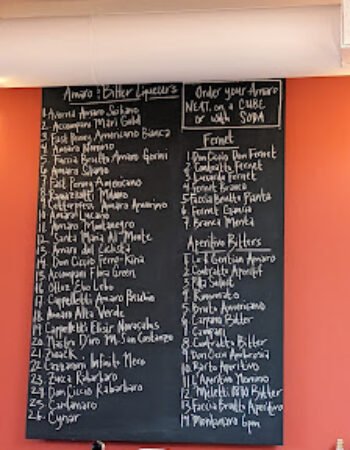 Amaro & Bitter Liqueurs
1. Averna Amaro Siciliano
2. Accompani Mari Gold
3. Fast Penny Americano Bianca
4. Amaro Nonino
5. Faccia Brutto Amaro Gorini
6. Amara
7. Fast Penny Americano
8. Ramazzotti Milano
9. Letterpress Amaro Amarino
10. Amaro Lucano
11. Amaro Montenegro
12. Santa Maria Al Monte
13. Amaro del Ciclista
14. Don Ciccio Ferro-Kina
15. Accompani Flora Green
16. Elio Lobo
17. Cappelletti Amaro
18. Amaro Alta Verde
19. Cappelletti Elisir Novasalus
20. Mastro D'Uro M. San Costanzo
21. Zwack
22. Infinito Nero
23. Zucca Rabarbaro
24. Don Ciccio Rabarbaro
25. Cardamaro
26. Cynar
Order your Amaro
NEAT, on a CUBE
or with SODA
Fernet
1. Don Ciccio Don Fernet
2. Contratto Fernet
3. Luxardo Fernet
4. Fernet Branca
5. Faccia Brutto Pianta
6. Fernet
7. Branca Menta
Aperitivo Bitters
1. Gentian Amaro
2. Contratto Aperitif
3.
4. Rinomato
5. Bruto Americano
6. Carpano Bitter
7. Campari
8. Contratto Bitter
9. Don Ciccio Ambrosia
10. Aperitivo
11. L'Aperitivo Nonino
12. Meletti 1870 Bitter
13. Faccia Brutto Aperitivo
14. Montanaro 6pm